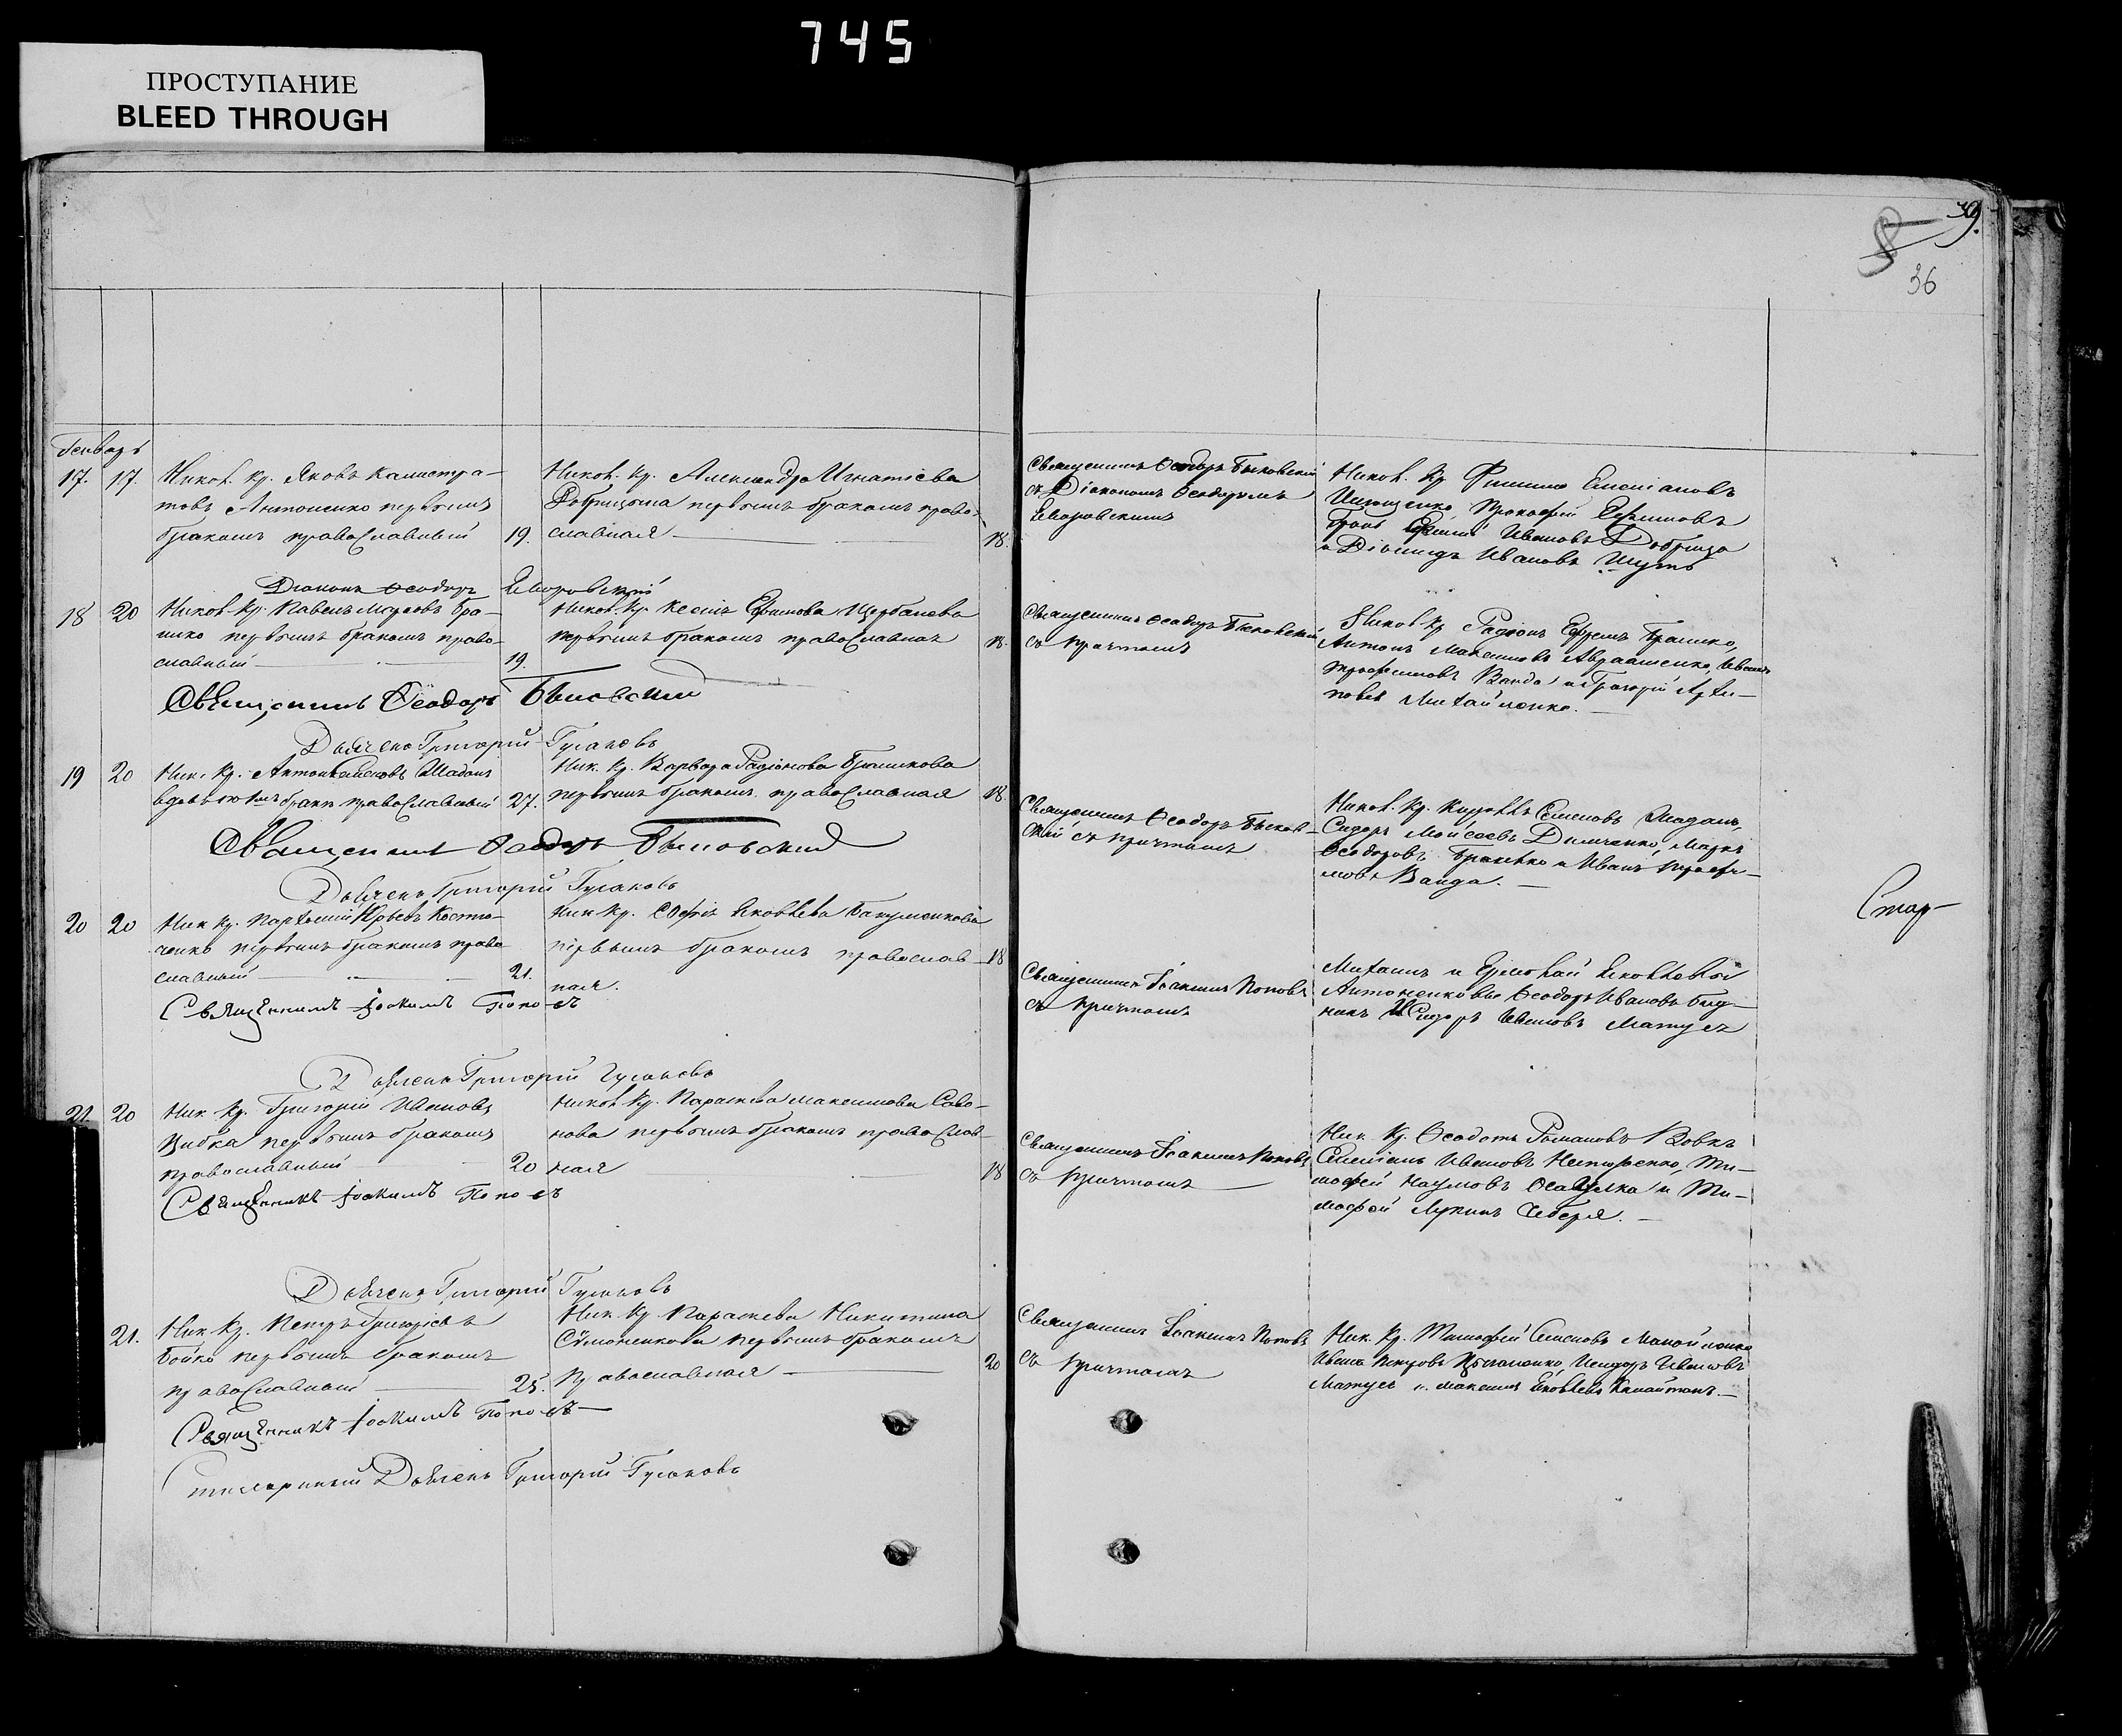 745
ПРОСТУПАНИЕ
BLEED THROUGH
39.
36
Генварь
17. 17. Никол. кр. Яковъ Калистра-
товъ Антоненко первымъ
бракомъ православный 19.
Никол. кр. Александра Игнатіева
первымъ бракомъ право-
славная 18.
Священникъ Ѳеодоръ Быковскій
съ Діакономъ Ѳеодоромъ
Никол. кр. Емеліановъ
Прокофій
Ивановъ Добрица
и Діомидъ Ивановъ Шутъ
Діаконъ Ѳеодоръ
18 20 Никол. кр. Павелъ
первымъ бракомъ право-
славный 19.
Никол. кр. Ксенія Ефимова Щербакова
первымъ бракомъ православная 18.
Священникъ Ѳеодоръ Быковскій
съ причтомъ
Никол. кр. Радіонъ
Антонъ Максимовъ Авраменко, Иванъ
Трофимовъ Ванда и Григорій
Михайленко.
Священникъ Ѳеодоръ Быковский
Дьячекъ Григорій Гусаковъ
19 20 Ник. кр. Антонъ Шадонъ
православный 27.
Ник. кр. Варвара Радіонова
первымъ бракомъ православная 18.
Священникъ Ѳеодоръ Быков-
скій съ причтомъ
Никол. кр. Семеновъ
Сидоръ Мойсеевъ Демченко, Марко
Ѳеодоровъ и Иванъ Трофи-
мовъ Ванда.
Священникъ Ѳеодоръ Быковский
Дьячекъ Григорій Гусаковъ
20 20 Ник. кр. Юрьевъ Костю-
ченко первымъ бракомъ право
славный 21.
Ник. кр. Софія Яковлева Бакуменкова
первымъ бракомъ православ- 18
ная.
Священникъ Іоакимъ Поповъ
съ причтомъ
Михаилъ и Ермолай Яковлевы
Антоненковы Ѳеодоръ Ивановъ Бид-
някъ Исидоръ Ивановъ Матусъ
Стар-
Священникъ Іоакимъ Поповъ
Дьячекъ Григорій Гусаковъ
21. 20 Ник. кр. Григорій Ивановъ
первымъ бракомъ
православный 20
Никол. кр. Параскева Максимова Саво-
нова первымъ бракомъ православ-
ная 18
Священникъ Іоакимъ Поповъ
съ причтомъ
Ник. кр. Ѳеодотъ Романовъ Вовкъ
Емеліанъ Ивановъ Ти-
мофей Наумовъ и Ти-
мофей Лукинъ
Священникъ Іоакимъ Поповъ
Дьячекъ Григорій Гусаковъ
21. Ник. кр. Петръ Григоріевъ
Бойко первымъ бракомъ
православный 25.
Ник. кр. Параскева Никитина
Симоненкова первымъ бракомъ
православная 20
Священникъ Іоакимъ Поповъ
съ причтомъ
Ник. кр. Тимофей Семеновъ
Иванъ Петровъ Исидоръ Ивановъ
Матусъ и Максимъ Яковлевъ
Священникъ Іоакимъ Поповъ
Дьячекъ Григорій Гусаковъ